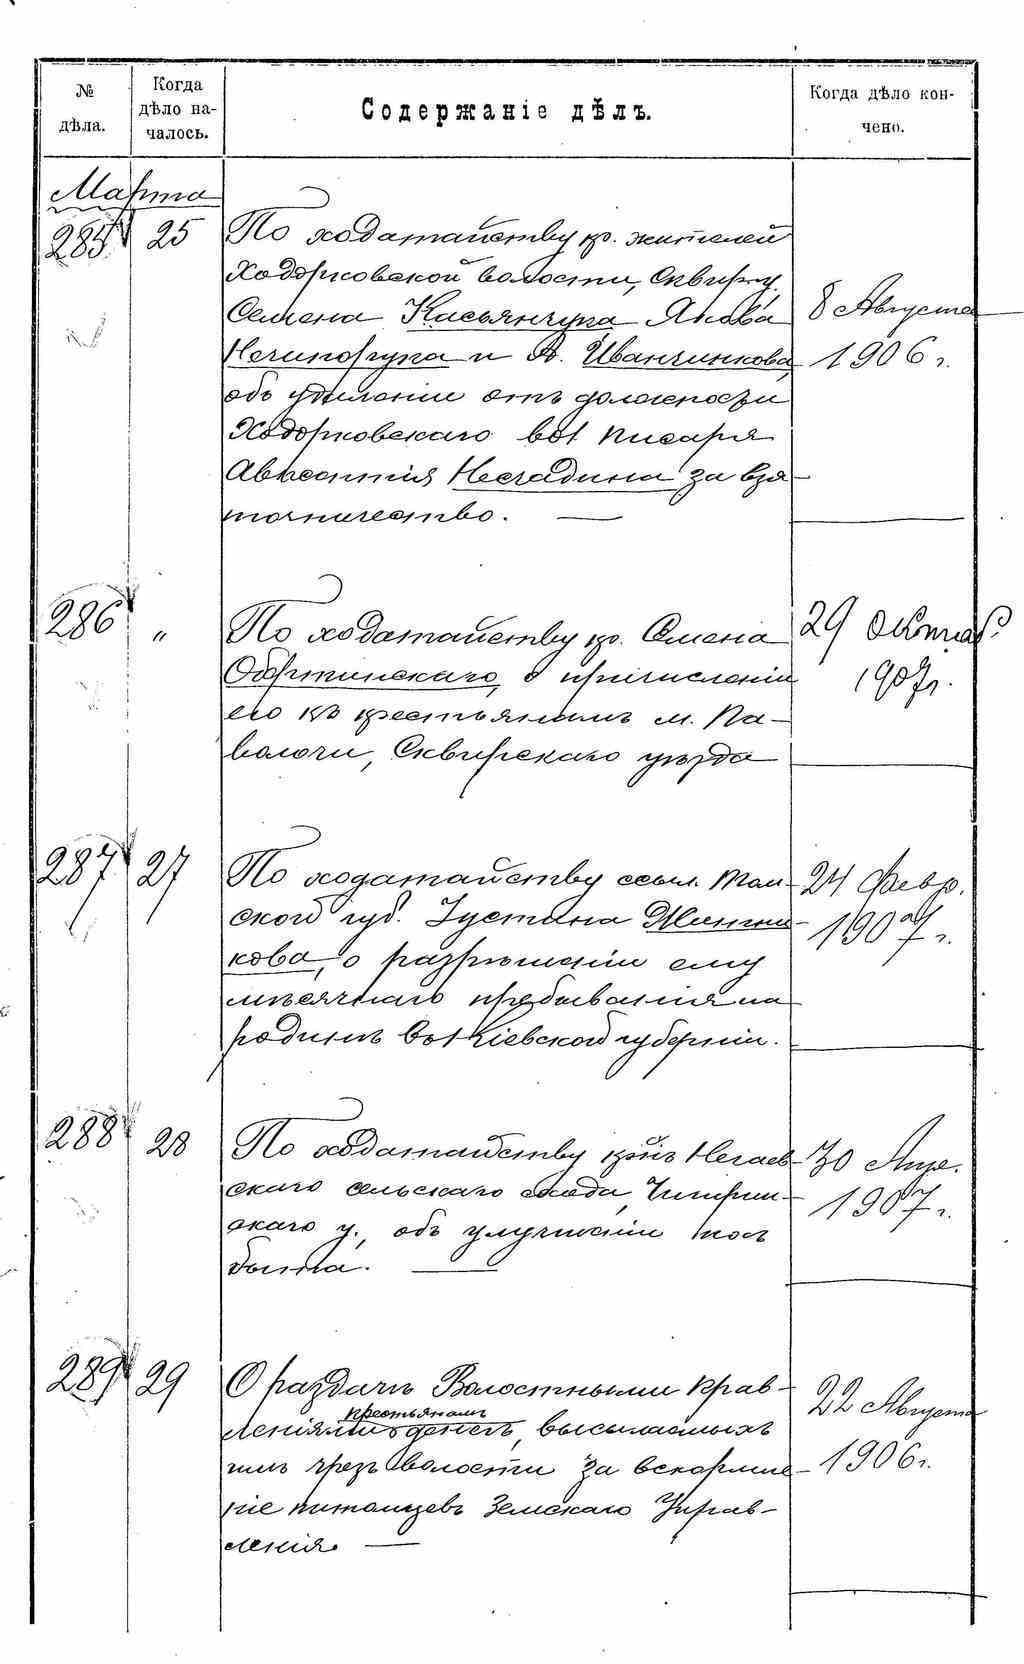 № дѣла.
Когда дѣло на-
чалось.
Содержаніе дѣлъ.
Когда дѣло кон-
чено.
Марта
285 25 По ходатайству кр. жителей
Ходорковской волости, Сквир. у.
Семена Касьянчука Якова
Нечипорука и А. Иванчинкова,
объ удаленіи отъ должности
Ходорковскаго вол писаря
Авксентія Несгадина за взя-
точничество.
8 Августа
1906 г.
286 " По ходатайству кр. Семена
Обертинскаго, о причисленіи
его къ крестьянамъ м. Па-
волочи, Сквирскаго уѣзда
29 Октяб.
1907 г.
287 27 По ходатайству ссыл. Том-
ской губ. Іустина
кова, о разрѣшеніи ему
мѣсячнаго пребыванія на
родинѣ въ Кіевской губерніи.
24 Февр.
1907 г.
288 28 По ходатайству крнъ Негаев-
скаго сельскаго схода, Чигирин-
скаго у., объ улучшеніи ихъ
быта.
30 Апр.
1907 г.
289 29 О раздачѣ Волостными Прав-
крестьянамъ
леніями денегъ, высылаемыхъ
имъ чрезъ волости за вскормле-
ніе питомцевъ Земскаго Управ-
ленія.
22 Августа
1906 г.